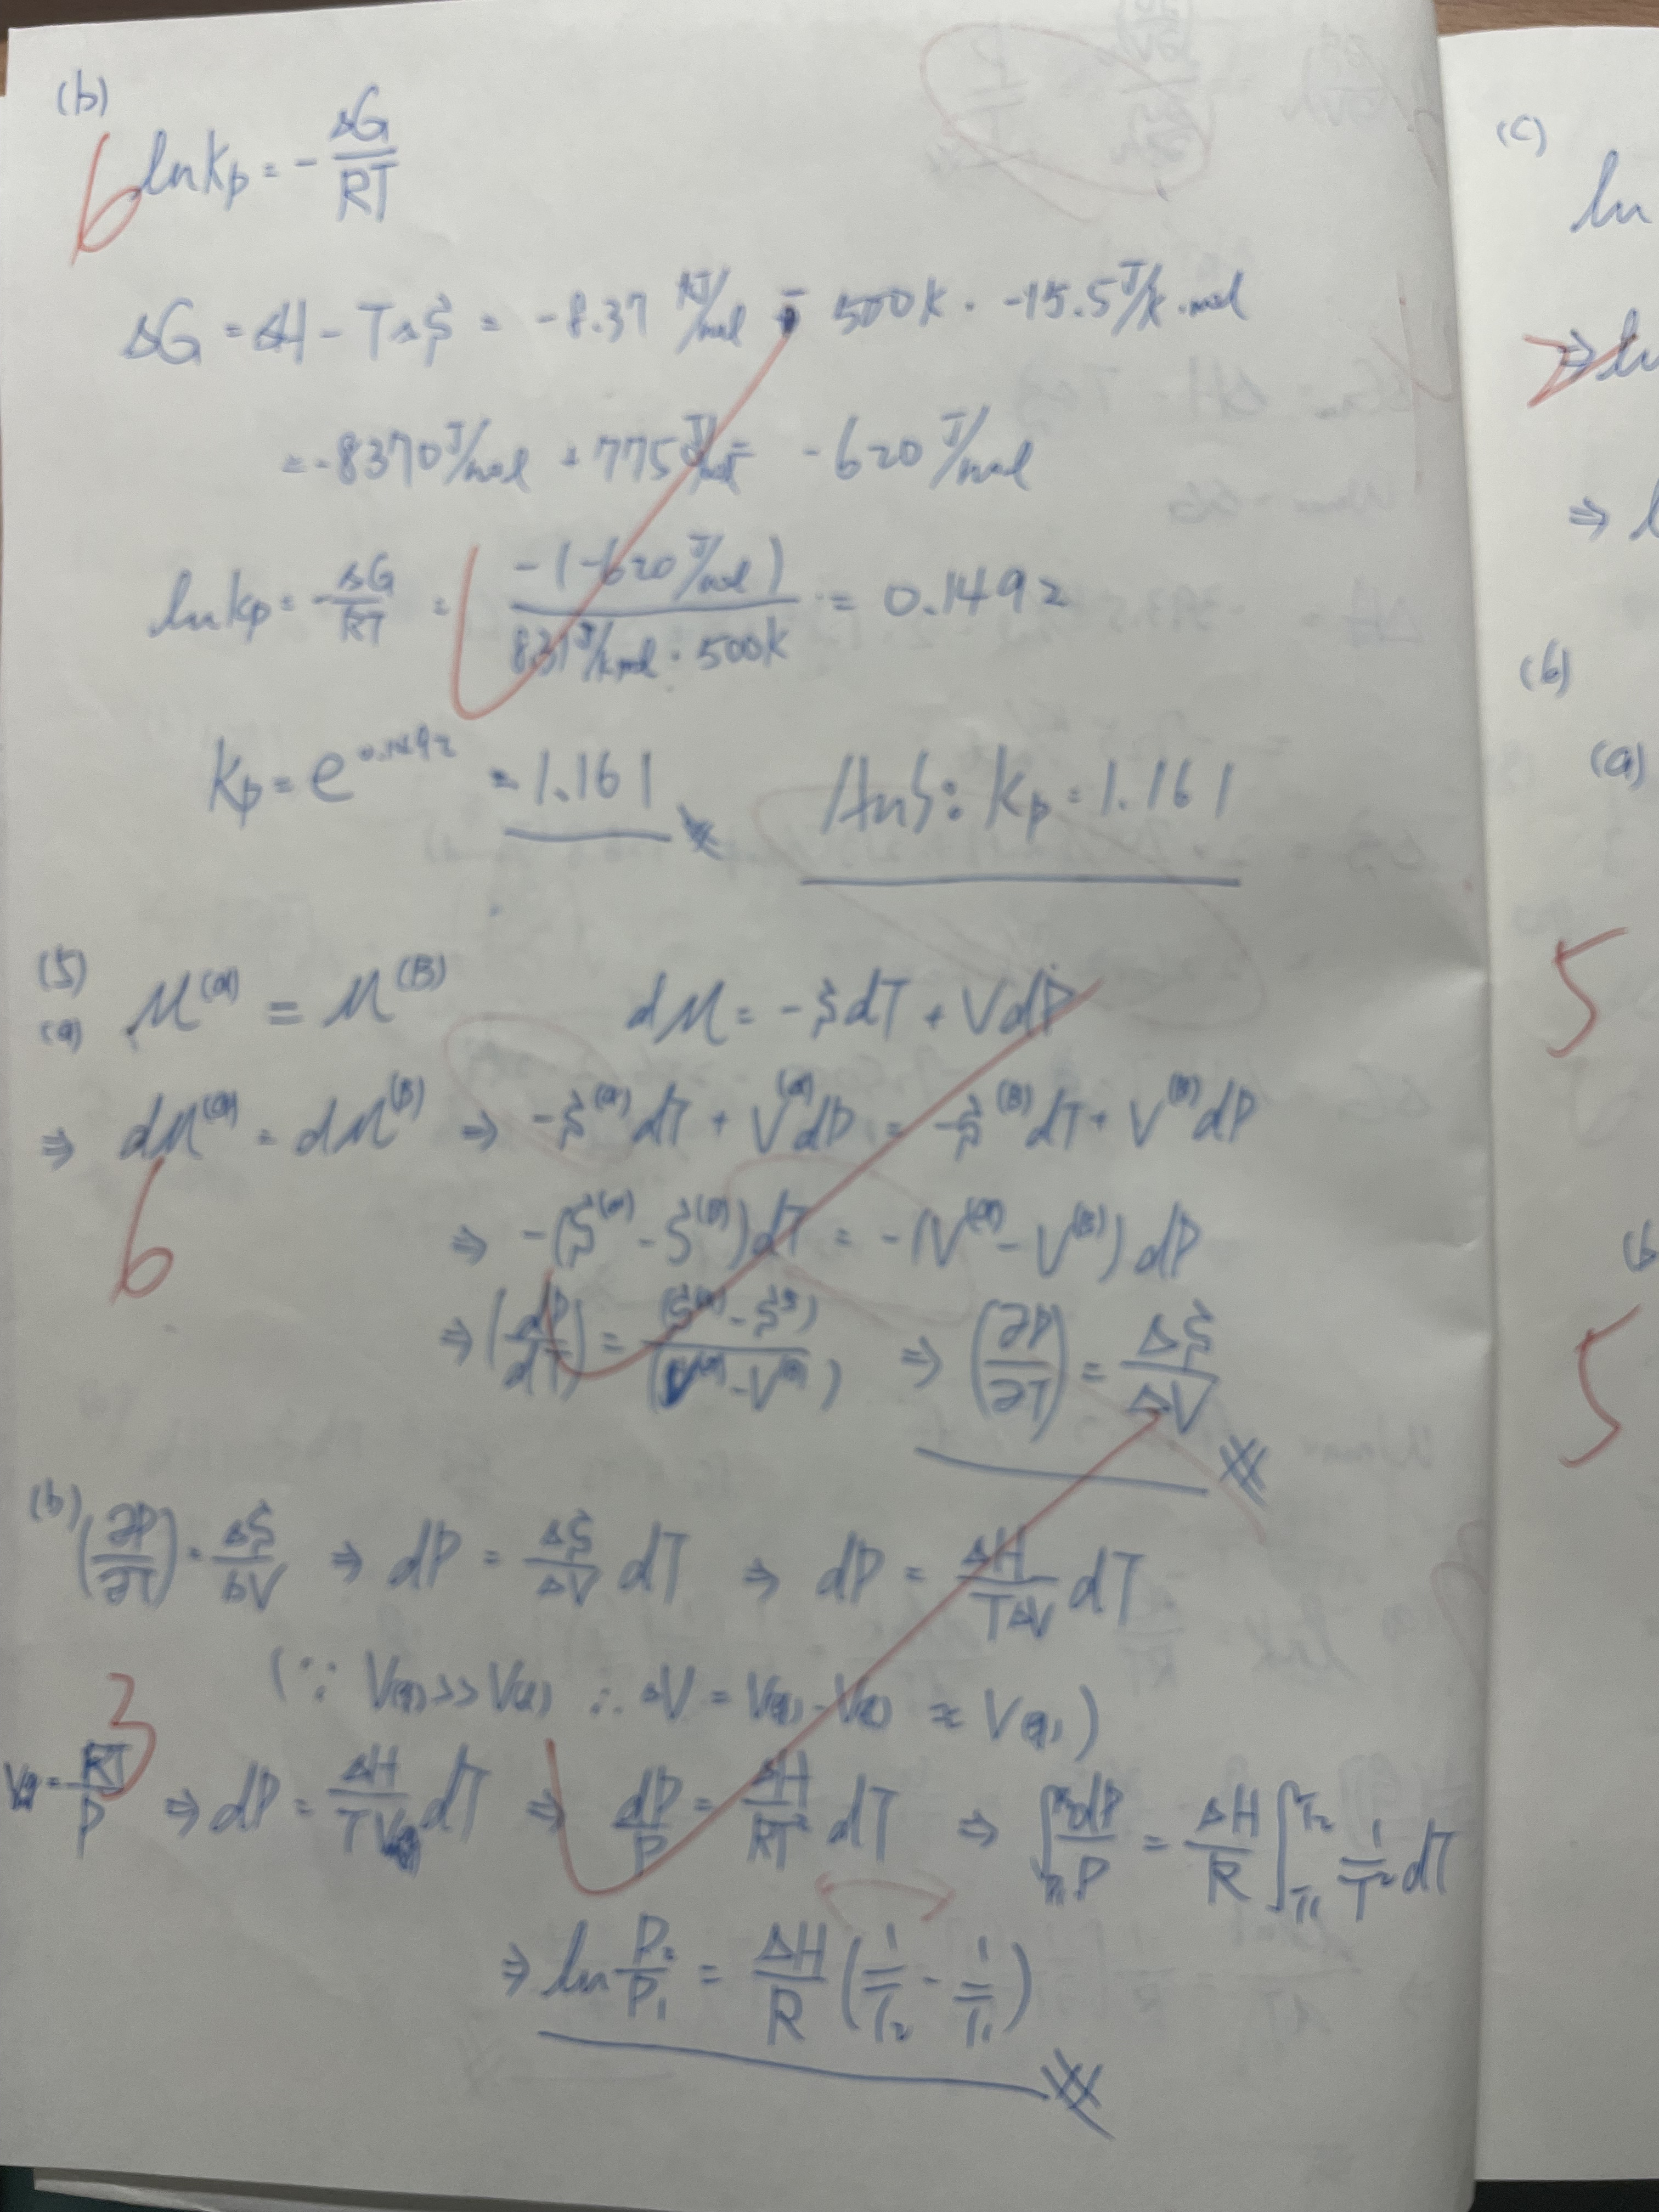 (b)
6
ln Kp = - ΔG/RT
ΔG = ΔH - TΔS = -8.37 KJ/mol - 500K · -15.5 J/K·mol
= -8370 J/mol + 775 J/mol = -620 J/mol
ln Kp = - ΔG/RT = -(-620 J/mol) / 8.31 J/K·mol · 500K = 0.1492
Kp = e^0.1492 = 1.161 Ans: Kp = 1.161
(5)
(a) μ^(α) = μ^(β) dμ = -SdT + VdP
⇒ dμ^(α) = dμ^(β) ⇒ -S^(α)dT + V^(α)dP = -S^(β)dT + V^(β)dP
6
⇒ -(S^(α) - S^(β))dT = -(V^(α) - V^(β))dP
⇒ (dP/dT) = (S^(α) - S^β)/(V^(α) - V^(β)) ⇒ (∂P/∂T) = ΔS/ΔV
(b) (∂P/∂T) = ΔS/ΔV ⇒ dP = ΔS/ΔV dT ⇒ dP = ΔH/TΔV dT
(∵ V(g) >> V(l) ∴ ΔV = V(g) - V(l) ≈ V(g))
3
Vg = RT/P ⇒ dP = ΔH/TV(g) dT ⇒ dP/P = ΔH/RT² dT ⇒ ∫_P1^P2 dP/P = ΔH/R ∫_T1^T2 1/T² dT
⇒ ln P₂/P₁ = ΔH/R (1/T₂ - 1/T₁)
(c)
ln
⇒ ln
⇒ l
(6)
(a)
5
(b
5